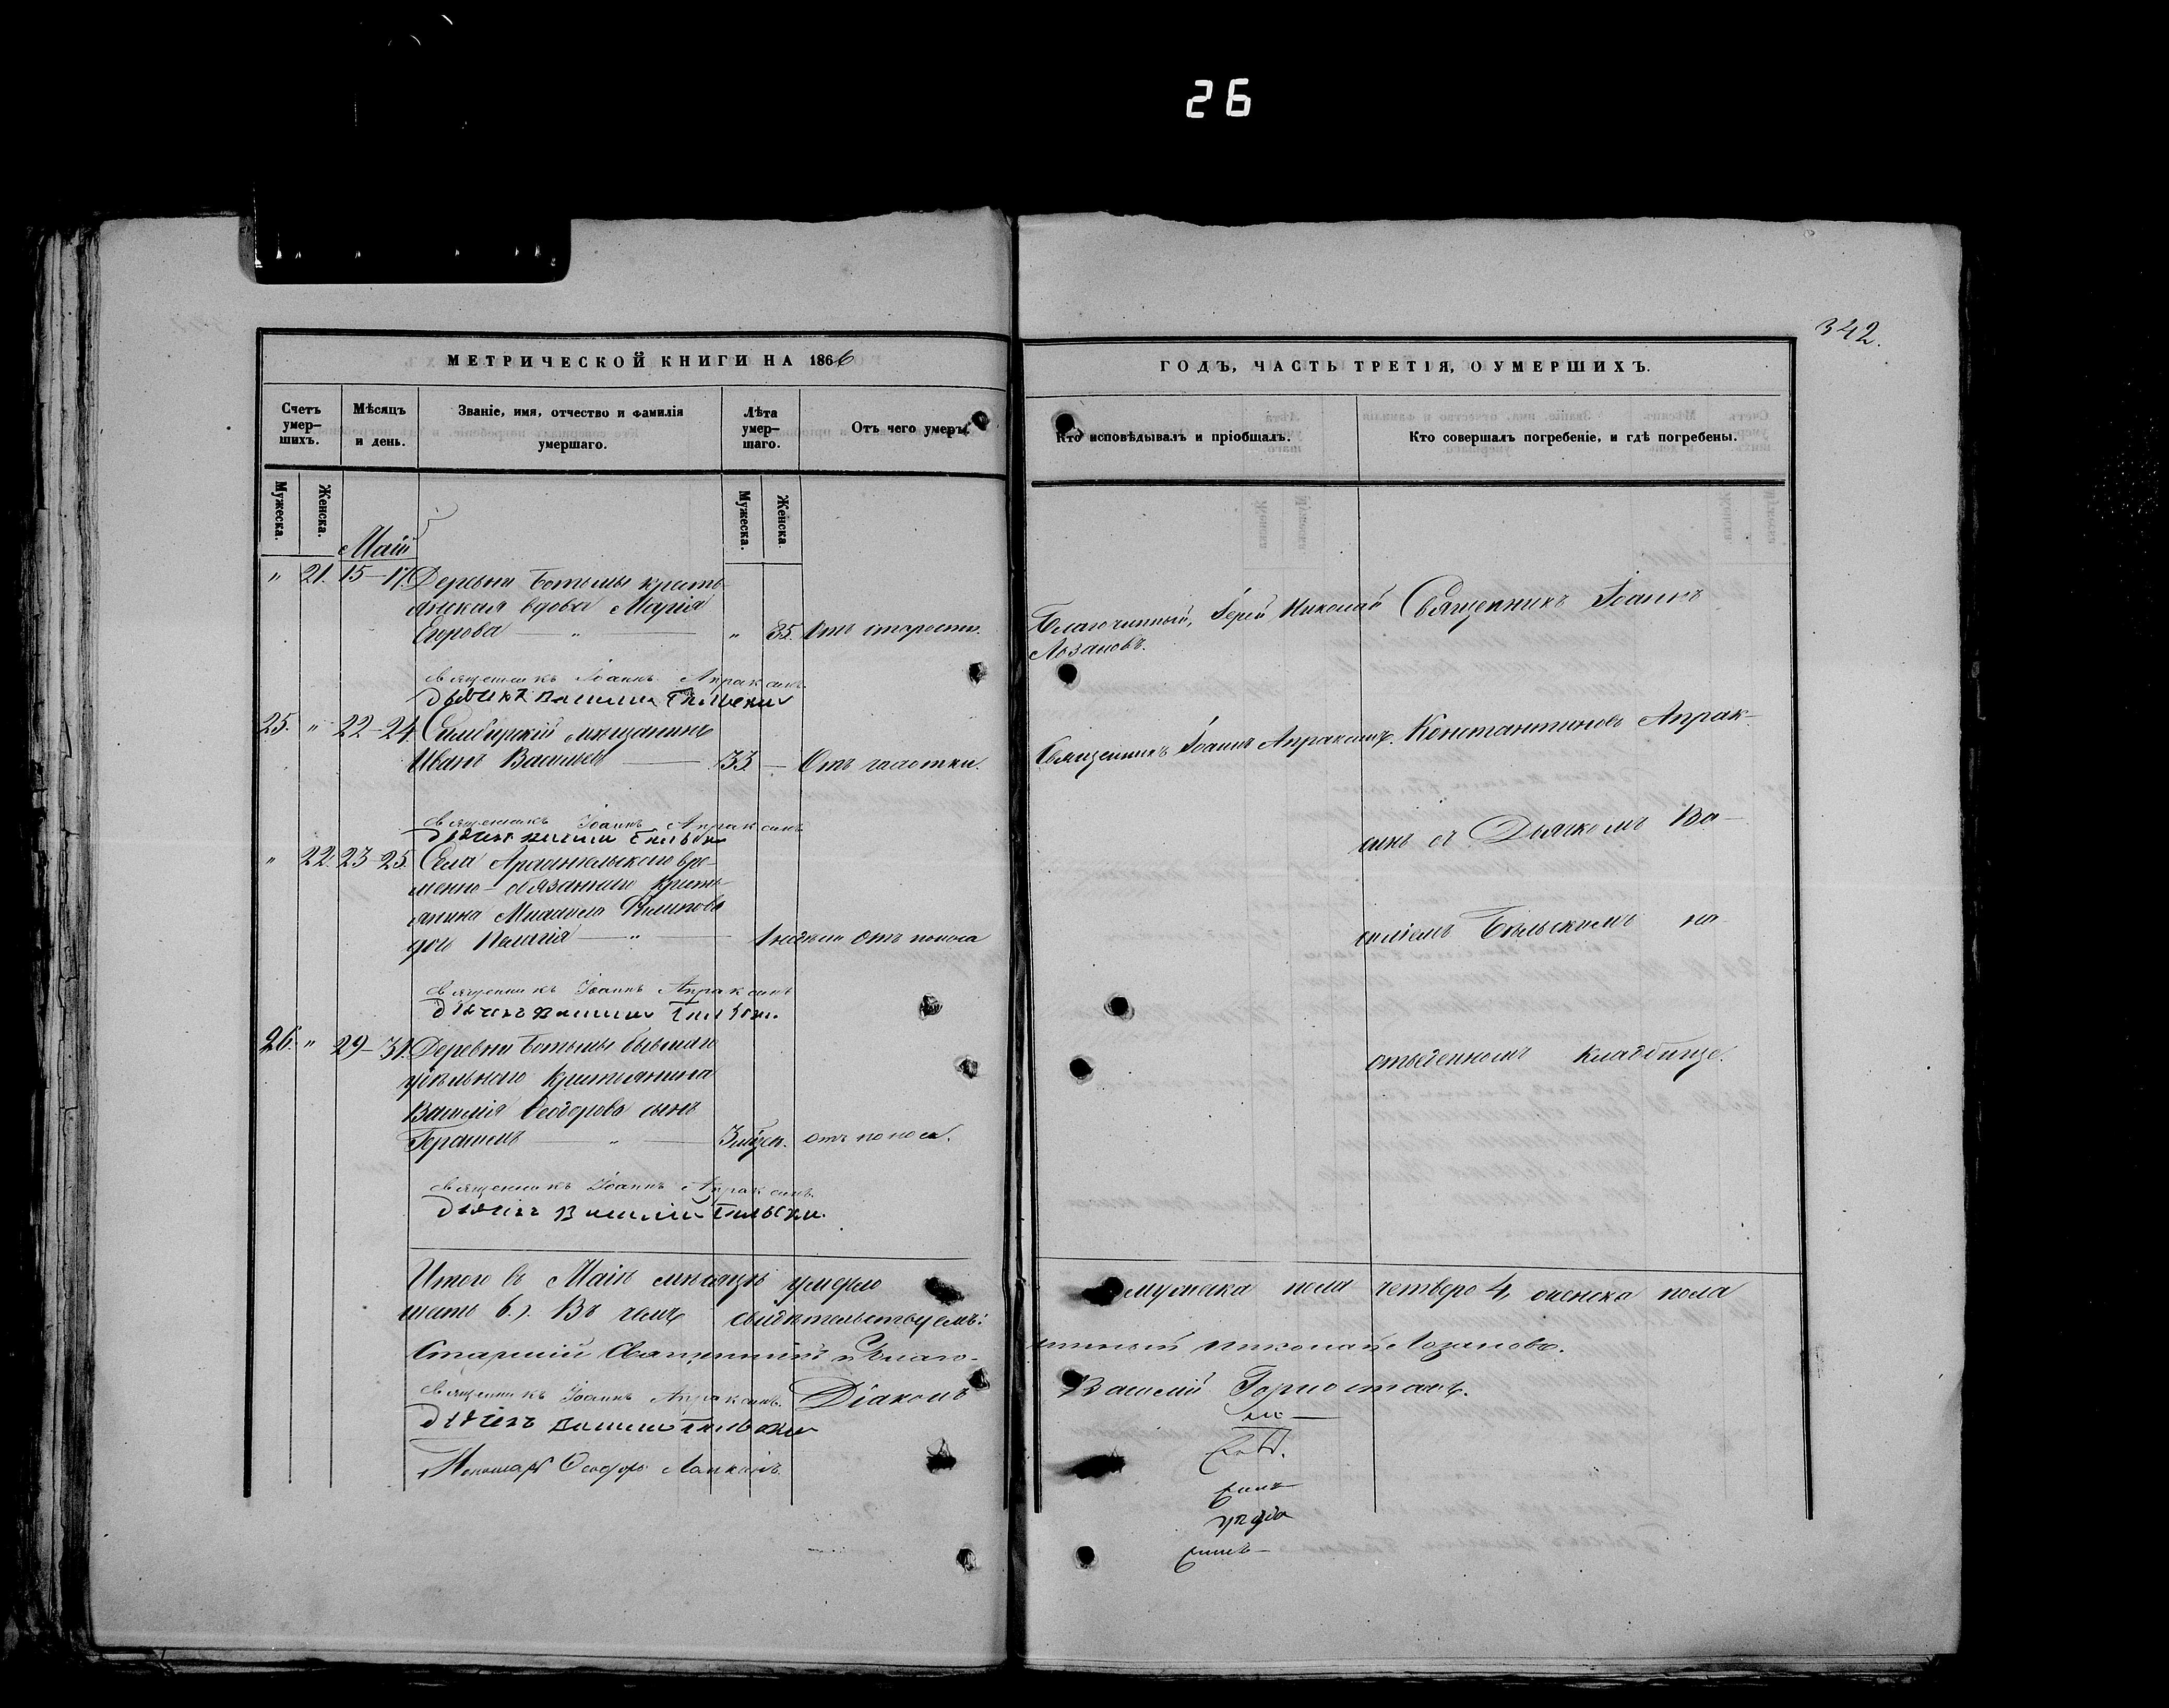 26
342.
МЕТРИЧЕСКОЙ КНИГИ НА 1866
ГОДЪ, ЧАСТЬ ТРЕТІЯ, О УМЕРШИХЪ.
Счетъ умер-шихъ.
Мѣсяцъ и день.
Званіе, имя, отчество и фамилія умершаго.
Лѣта умер-шаго.
Отъ чего умеръ.
Кто исповѣдывалъ и пріобщалъ.
Кто совершалъ погребеніе, и гдѣ погребены.
Мужеска.
Женска.
Мужеска.
Женска.
Май
" 21. 15-17. Деревни Ботьмы кресть-
янская вдова Марія
Егорова — " — " 85. Отъ старости.
Благочинный, Іерей Николай
Лозановъ.
Священникъ Іоаннъ
священникъ Іоаннъ Апраксинъ
дьячекъ Василій Бѣльскій
25. " 22-24. Симбирскій мѣщанинъ
Иванъ Васильевъ — 33. — Отъ чахотки.
Священникъ Іоаннъ Апраксинъ.
Константиновъ Апрак-
священникъ Іоаннъ Апраксинъ
дьячекъ Василій Бѣльскій
синъ съ Дьячкомъ Ва-
" 22. 23-25. Села Архангельскаго вре-
менно-обязаннаго кресть-
янина Михаила Филипова
дочь Пелагія — " — 1 недѣли отъ поноса
силіемъ Бѣльскимъ на
священникъ Іоаннъ Апраксинъ
дьячекъ Василій Бѣльскій.
26. " 29-31. Деревни Ботьмы бывшаго
удѣльнаго крестьянина
Василія Ѳеодорова сынъ
Герасимъ — " — 3 мѣсяц. отъ поноса.
отведенномъ кладбище.
священникъ Іоаннъ Апраксинъ.
дьячекъ Василій Бѣльскій.
Итого въ Маіѣ мѣсяцѣ умерло мужеска пола четверо 4, женска пола
шесть 6.). Въ чемъ свидѣтельствуемъ:
Старшій Священникъ и Благо-
чинный Николай Лозановъ.
священникъ Іоаннъ Апраксинъ. Діаконъ Василій Горностаевъ.
дьячекъ Василій Бѣльскій
Пономарь Ѳеодоръ Лапкинъ.